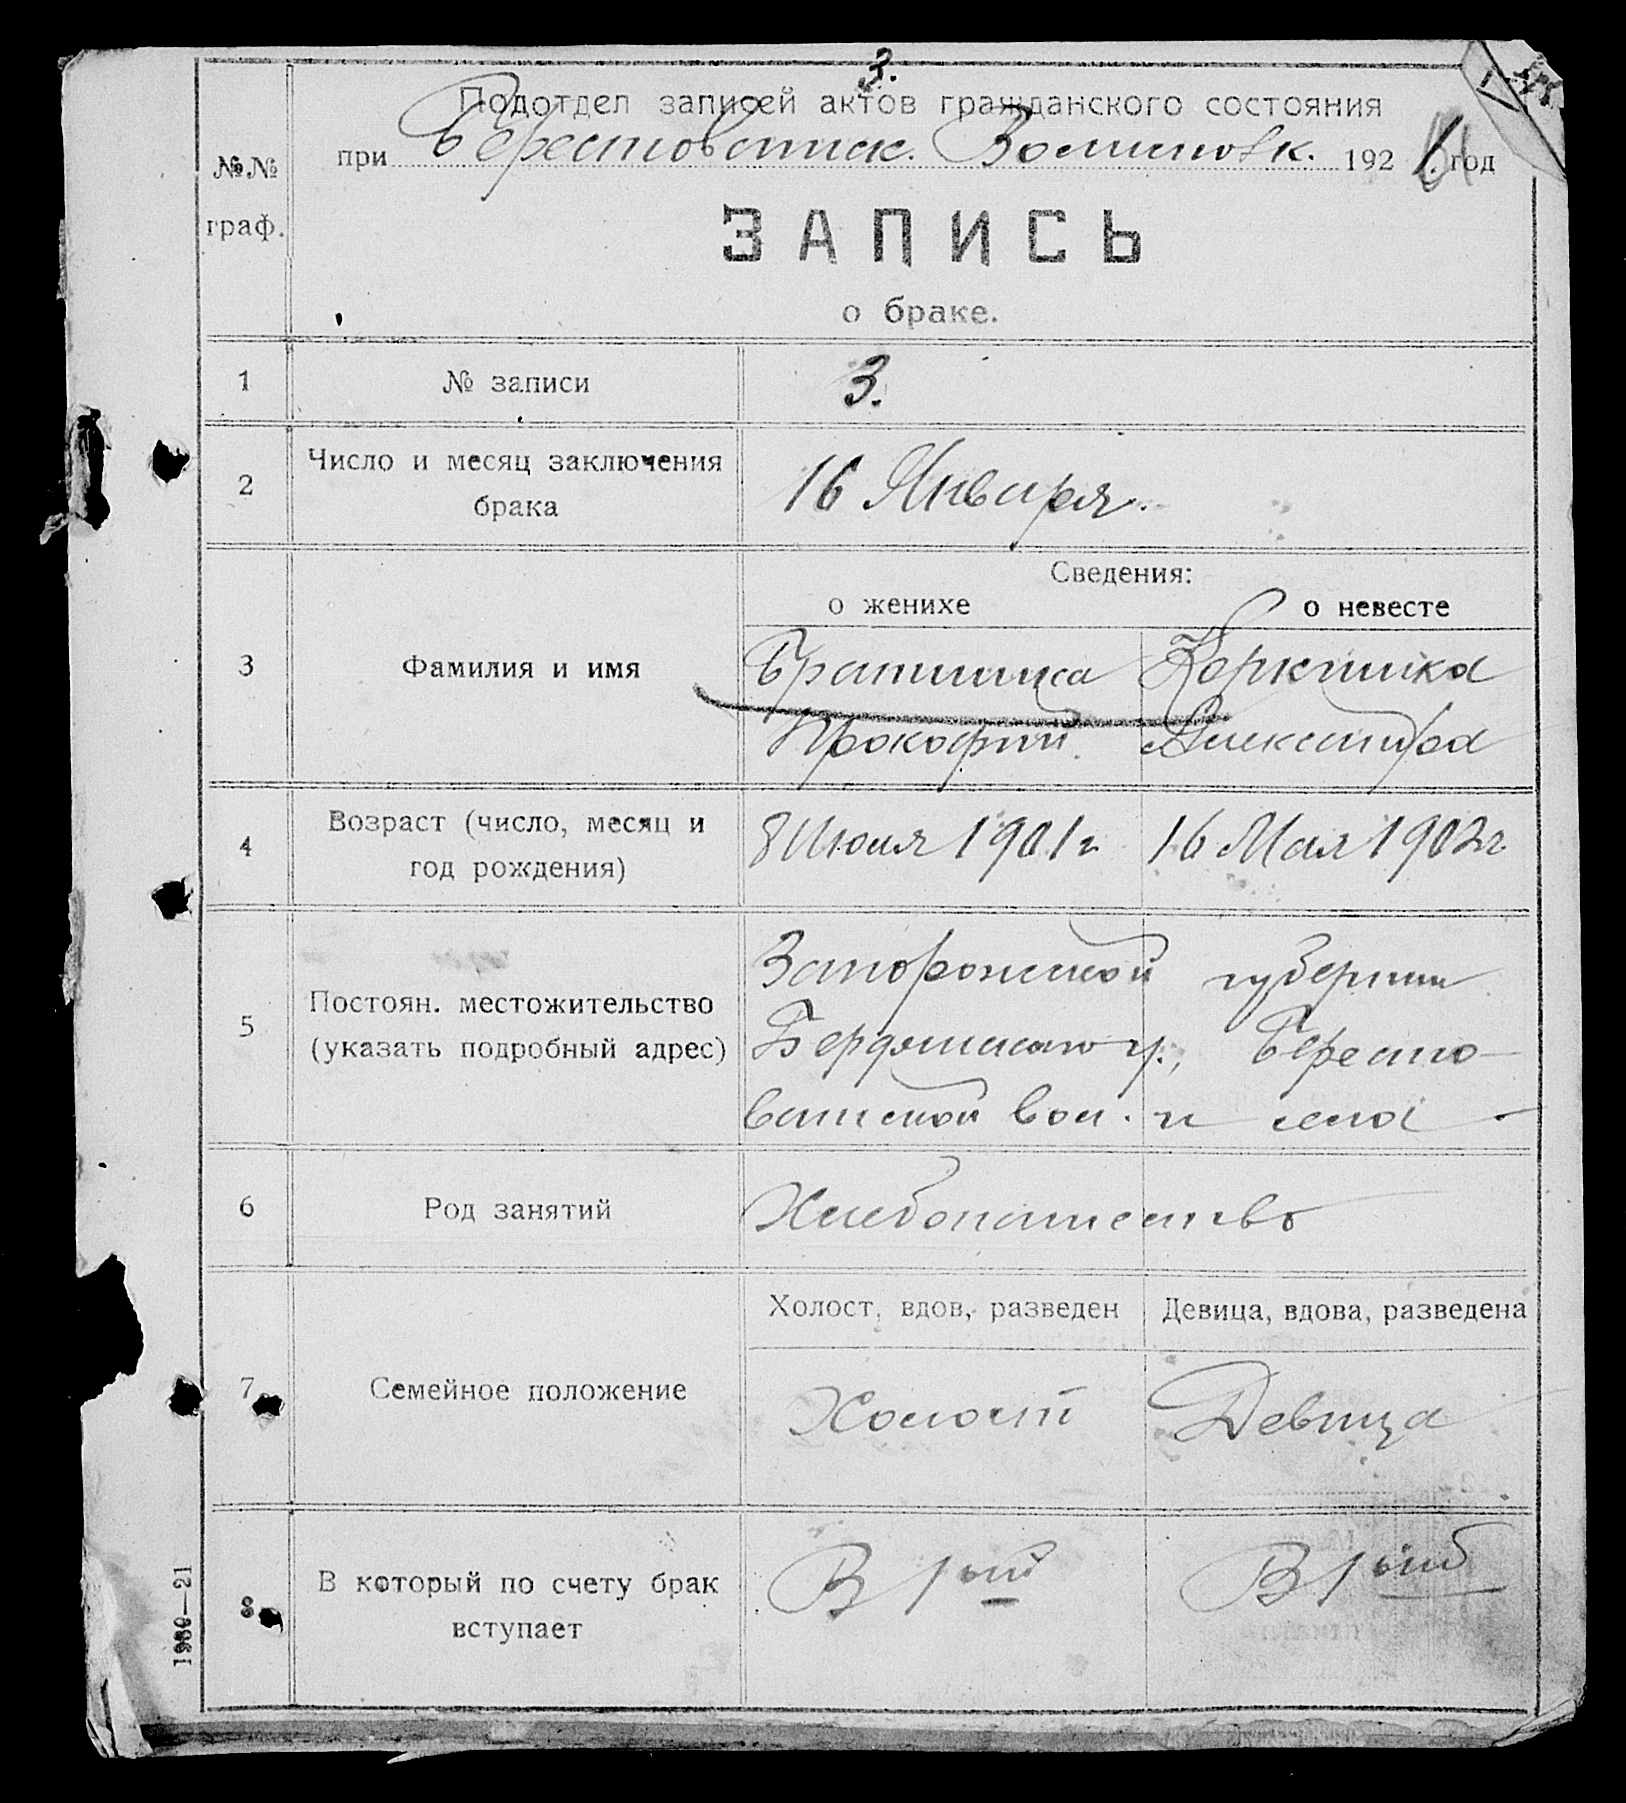 3.
Подотдел записей актов гражданского состояния
при Берестоватск. Волисполк. 192 год
№№ граф.
ЗАПИСЬ
о браке.
1 № записи 3.
2 Число и месяц заключения
брака
16 Января.
Сведения:
о женихе о невесте
3 Фамилия и имя
Братишка
Прокофий.
Александра
4 Возраст (число, месяц и
год рождения)
8 Июля 1901 г. 16 Мая 1902 г.
5 Постоян. местожительство
(указать подробный адрес)
Запорожской губернии
Бердянского у., Бересто-
ватской вол. и села
6 Род занятий Хлебопашество
7 Семейное положение
Холост, вдов, разведен Девица, вдова, разведена
Холост Девица
8 В который по счету брак
вступает
В 1ый В 1ый